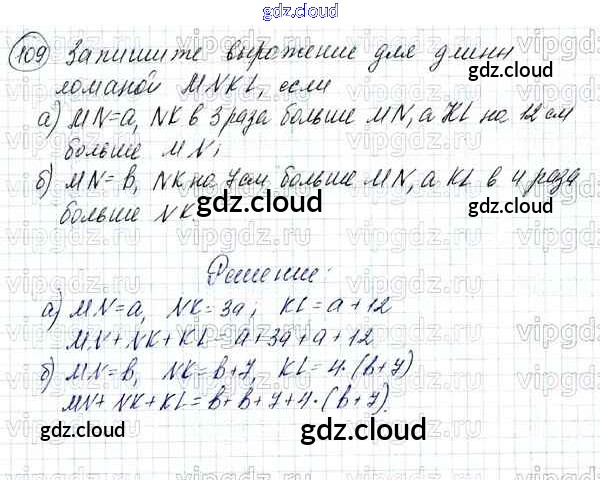 gdz.cloud
109 Запишите выражение для длины
ломаной MNKL, если
а) MN=a, NK в 3 раза больше MN, а KL на 12 см
больше MN;
б) MN=в, NK на 7 см больше MN, а KL в 4 раза
больше NK.
Решение:
а) MN=a, NK=3a; KL=a+12
MN+NK+KL=a+3a+a+12
б) MN=в, NK=в+7, KL=4·(в+7)
MN+NK+KL=в+в+7+4·(в+7).
gdz.cloud